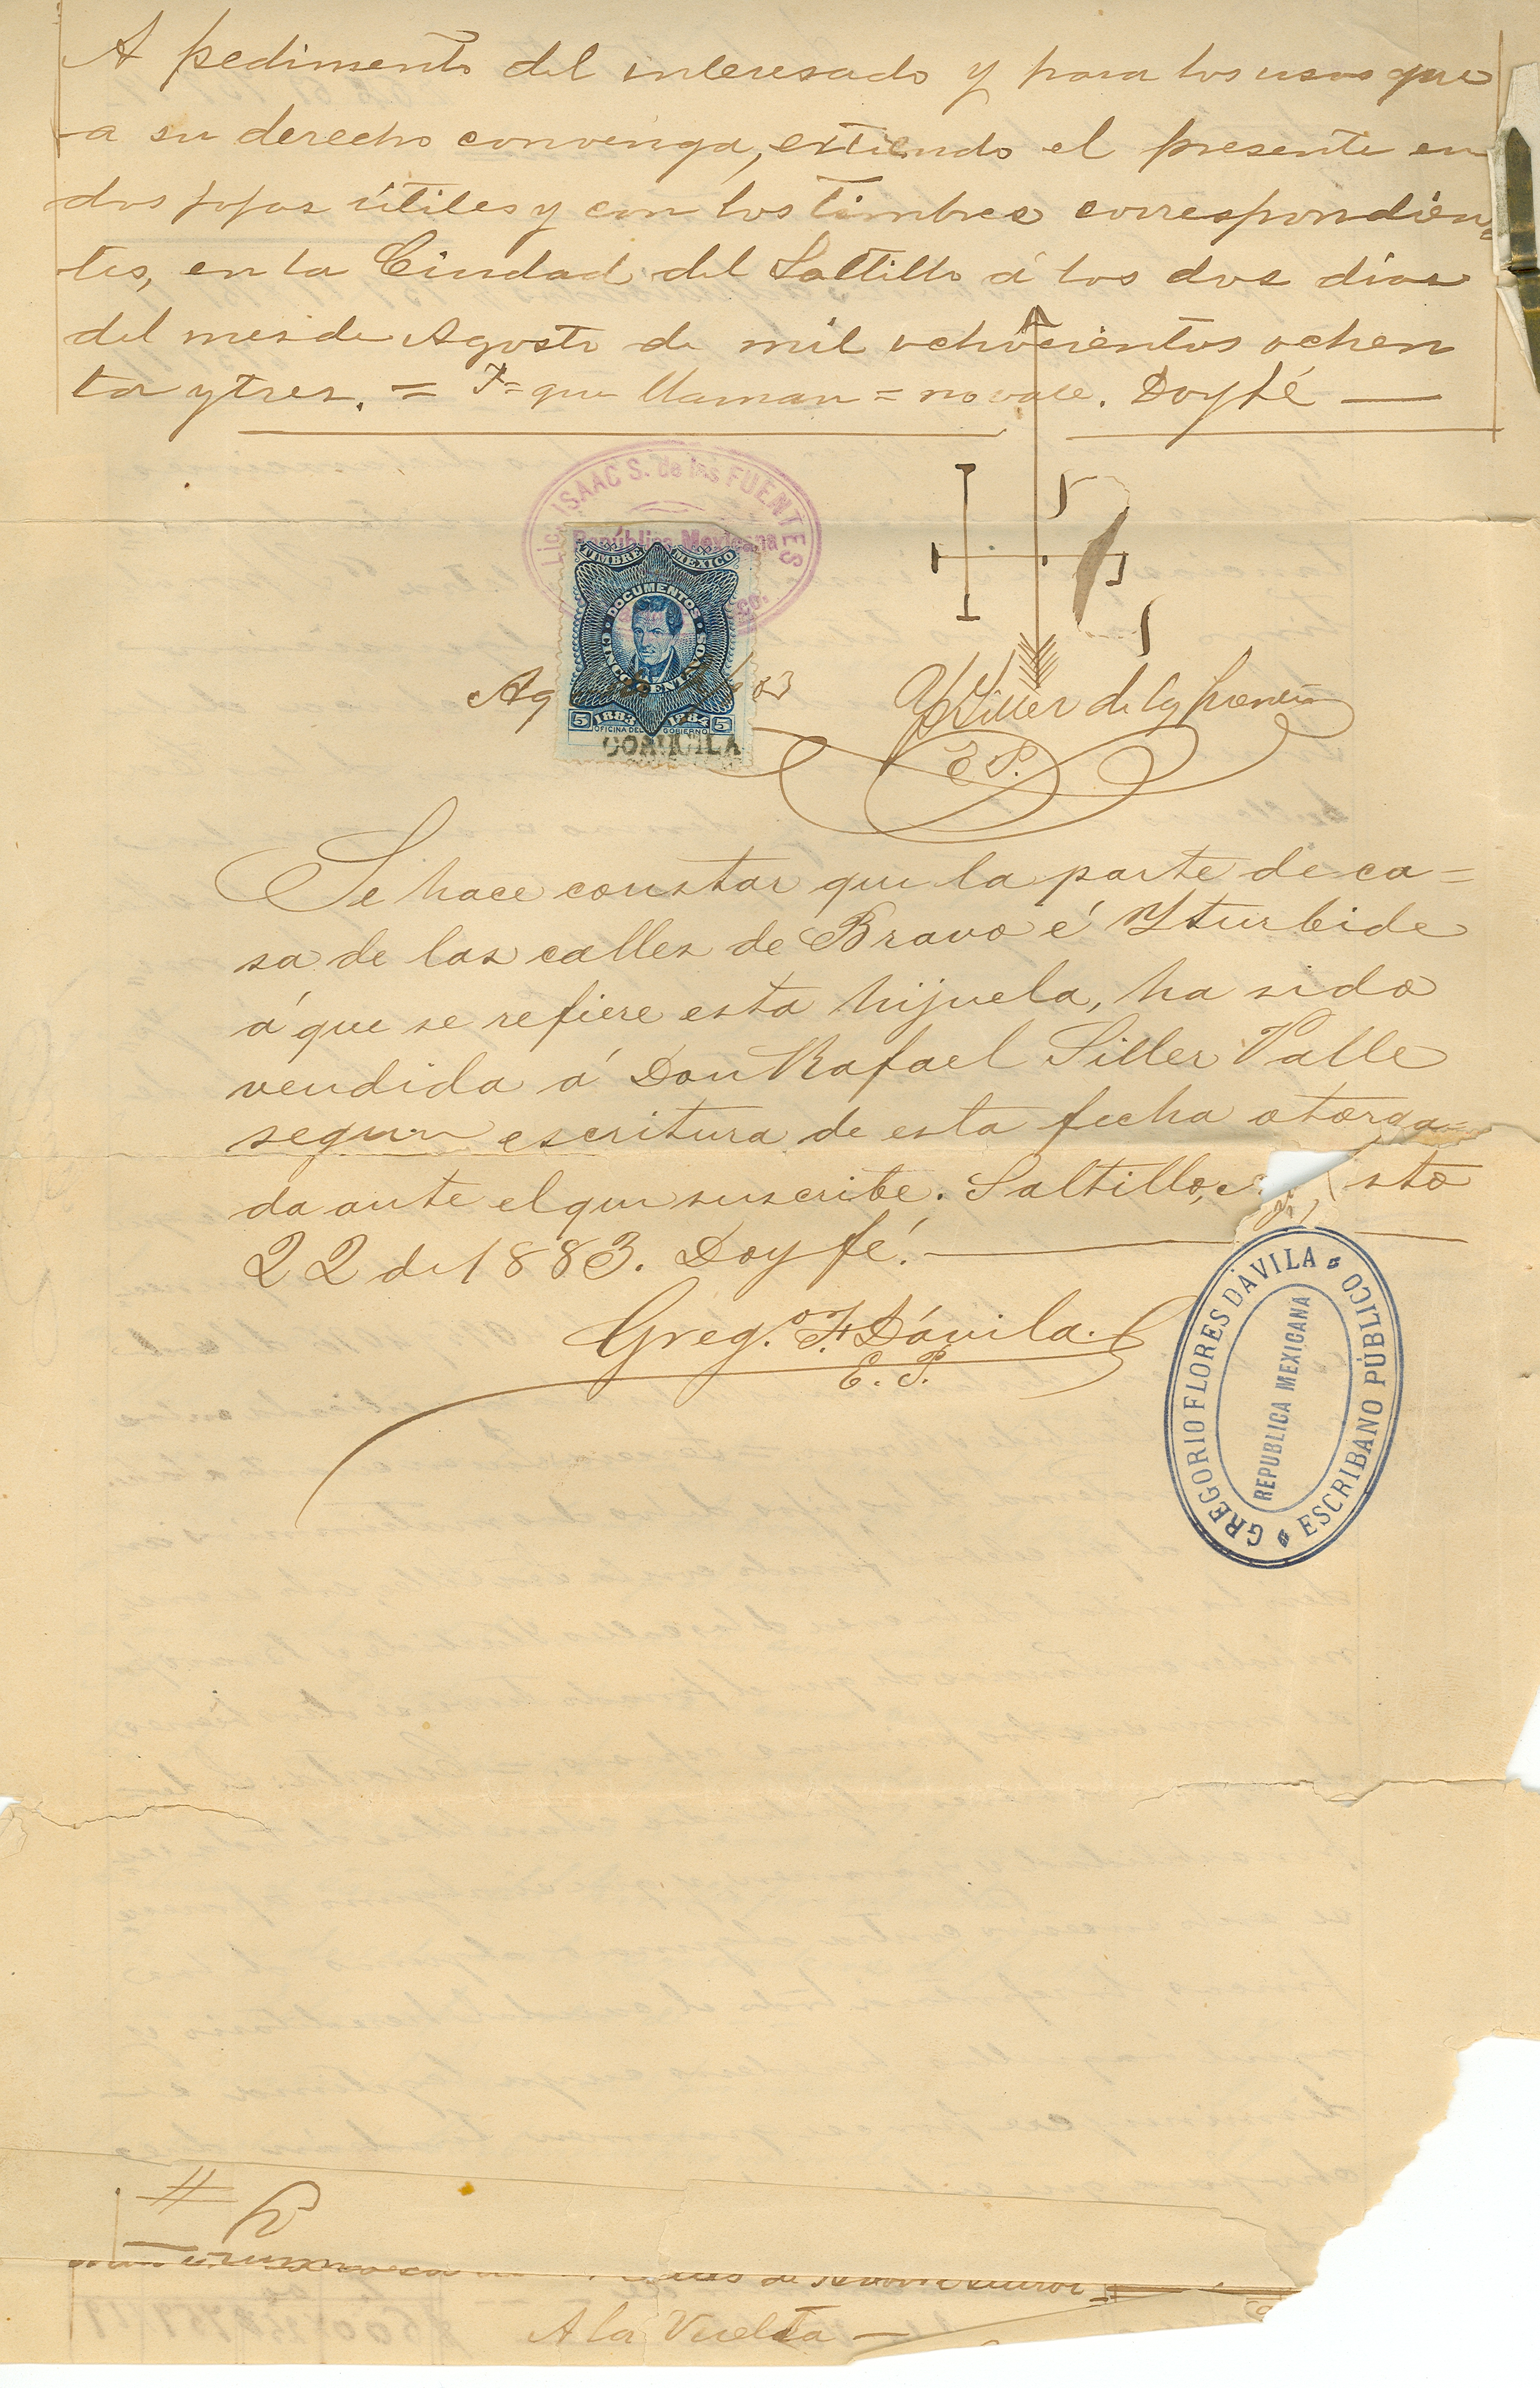 A pedimento del interesado y para los usos que
a su derecho convenga, extiendo el presente en
dos fojas útiles y con los timbres correspondien
tes, en la Ciudad del Saltillo á los dos días
del mes de Agosto de mil ochocientos ochen
ta y tres. = T = que llaman = no vale. Doy fé
Lic. ISAAC S. de las FUENTES
República Mexicana
TIMBRE MEXICO
DOCUMENTOS
CINCO CENTAVOS
5 1883 1884 5
OFICINA DEL GOBIERNO
COAHUILA
Siller de la
E P.
Se hace constar que la parte de ca=
sa de las calles de Bravo é Yturbide
á que se refiere esta hijuela, ha sido
vendida á Don Rafael Siller Valle
segun escritura de esta fecha otorga=
da ante el que suscribe. Saltillo, sto
22 de 1883. Doy fé.
Greg.o F. Dávila.
E. P.
GREGORIO FLORES DÁVILA
ESCRIBANO PÚBLICO
REPUBLICA MEXICANA
A la Vuelta